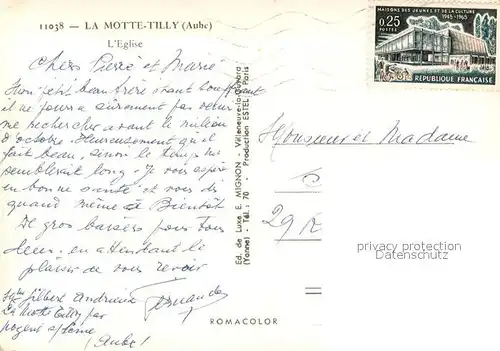 11038 — LA MOTTE-TILLY (Aube)
L'Eglise
MAISONS DES JEUNES ET DE LA CULTURE
1945-1965
0,25
POSTES
RÉPUBLIQUE FRANÇAISE
Chers Pierre et Marie
Mon petit beau frère étant souffrant
il ne pourra sûrement pas venir
me rechercher avant le milieu
d'octobre. Heureusement qu'il
fait beau, sinon le temps me
semblerait long. Je vous espère
en bonne santé et vous dis
quand même à Bientôt
De gros baisers pour tous
deux. en attendant le
plaisir de vous revoir
Fernande
Gilbert Andrieux
La Motte Tilly par
Nogent s/Seine
(Aube)
Ed. de Luxe E. MIGNON - Villeneuve-la-Guyard
(Yonne) - Tél.: 70 Production ESTEL - Paris
Monsieur et Madame
privacy protection
ROMACOLOR